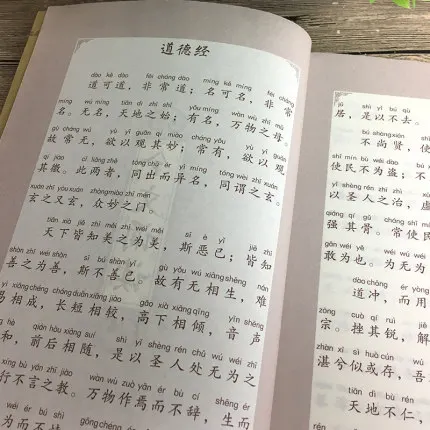 道德经
dào kě dào fēi cháng dào míng kě míng fēi cháng
道可道，非常道；名可名，非常
míng wú míng tiān dì zhī shǐ yǒu míng wàn wù zhī mǔ
名。无名，天地之始；有名，万物之母。
gù cháng wú yù yǐ guān qí miào cháng yǒu yù yǐ guān
故常无，欲以观其妙；常有，欲以观
qí jiào cǐ liǎng zhě tóng chū ér yì míng tóng wèi zhī xuán
其徼。此两者，同出而异名，同谓之玄。
xuán zhī yòu xuán zhòng miào zhī mén
玄之又玄，众妙之门。
tiān xià jiē zhī měi zhī wéi měi sī è yǐ jiē zhī
天下皆知美之为美，斯恶已；皆知
shàn zhī wéi shàn sī bú shàn yǐ gù yǒu wú xiāng shēng nán
善之为善，斯不善已。故有无相生，难
yì xiāng chéng cháng duǎn xiāng jiào gāo xià xiāng qīng yīn shēng
易相成，长短相较，高下相倾，音声
hè qián hòu xiāng suí shì yǐ shèng rén chǔ wú wéi zhī
和，前后相随，是以圣人处无为之
xíng bù yán zhī jiào wàn wù zuò yān ér bù cí shēng ér
行不言之教。万物作焉而不辞，生而
wéi ér bú shì gōng chéng
为而不恃，
jū shì yǐ bú qù
居，是以不去。
bú shàng xián
不尚贤，使
shǐ mín bù wéi dào
使民不为盗；不
yǐ shèng rén zhī zhì
以圣人之治，虚
qiáng qí gǔ cháng shǐ
强其骨。常使民
gǎn wéi yě wéi wú wéi
敢为也。为无为
dào chōng ér yòng
道冲，而用
zōng cuò qí ruì jiě
宗。挫其锐，解
zhàn xī sì huò cún wú
湛兮似或存，吾
tiān dì bù rén
天地不仁，